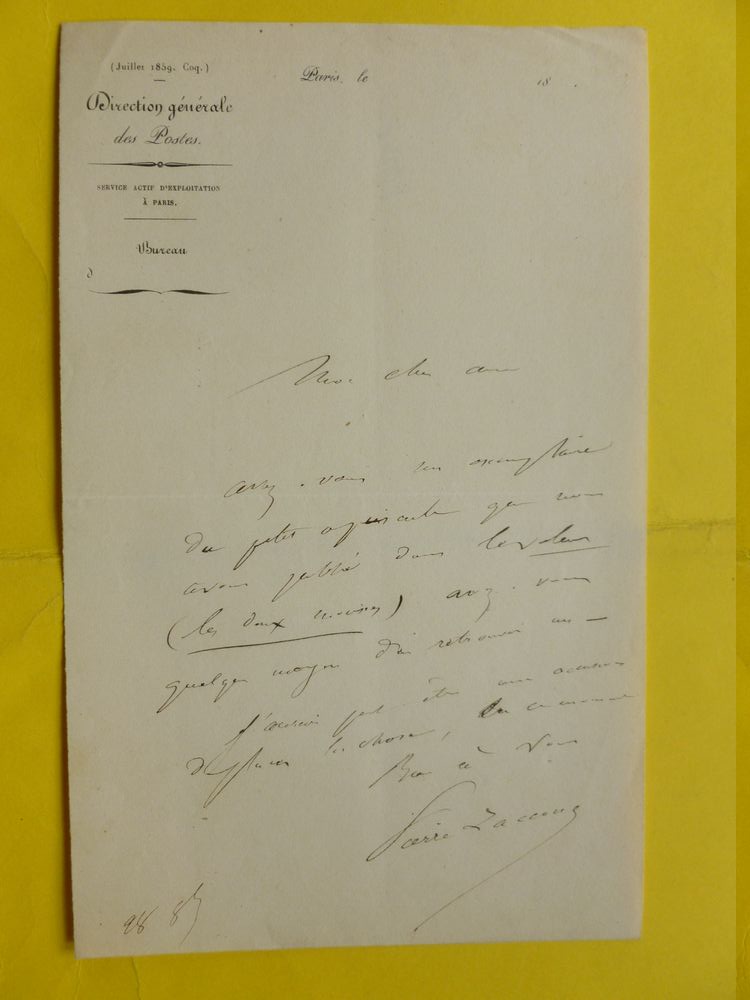 (Juillet 1859. Coq.)
Paris, le 18
Direction générale
des Postes.
SERVICE ACTIF D'EXPLOITATION
À PARIS.
Bureau
d
Mon cher ami
avez-vous un exemplaire
du petit opuscule que nous
avons publié dans
(les deux) avez-vous
quelque moyen d'en retrouver un —
J'aurais peut être une occasion
de placer la chose, en ce moment
Bien à vous
Pierre Zaccone